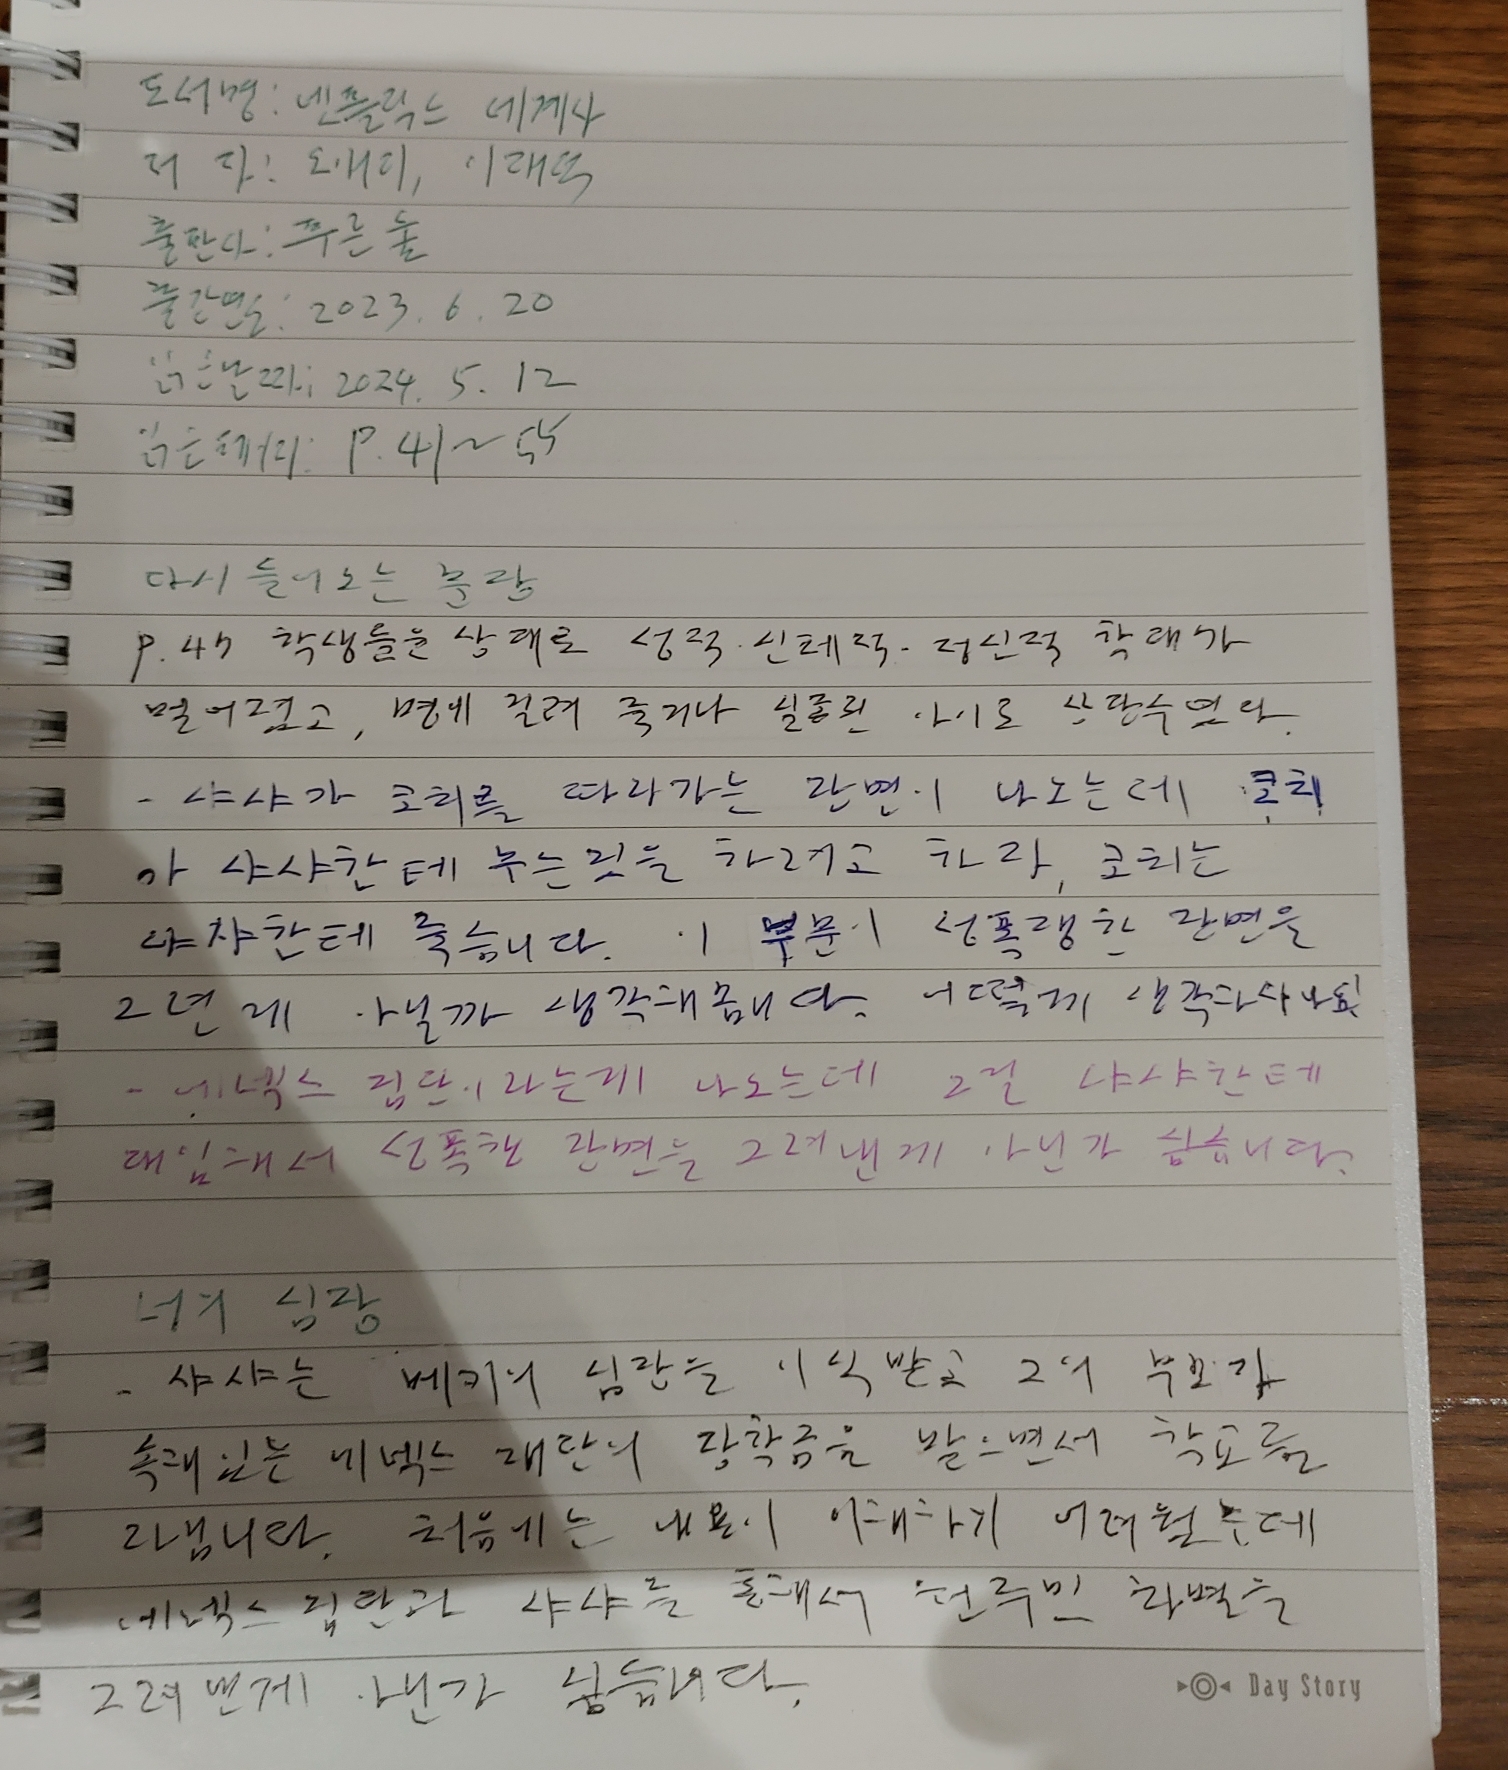 도서명: 넨플릭스 세계사
저 자: 오애리, 이재덕
출판사: 푸른 숲
출간연도: 2023. 6. 20
읽은날짜: 2024. 5. 12
읽은페이지: P. 41~
다시 들어오는 문장
P. 47 학생들을 상대로 성적·신체적·정신적 학대가
벌어졌고, 병에 걸려 죽거나 실종된 아이도 상당수였다.
- 샤샤가 코치를 따라가는 장면이 나오는데 코치
가 샤샤한테 무슨짓을 하려고 하자, 코치는
샤샤한테 죽습니다. 이 부분이 성폭행한 장면을
그린 게 아닐까 생각해봅니다. 어떻게 생각하시나요?
- 네넥스 집단이라는게 나오는데 그걸 샤샤한테
대입해서 성폭행 장면을 그려낸게 아닌가 싶습니다.
너의 심장
- 샤샤는 베키의 심장을 이식받고 그의 부모가
속해있는 네넥스 재단의 장학금을 받으면서 학교를
다닙니다. 처음에는 내용이 이해하기 어려웠는데
네넥스 집단과 샤샤를 통해서 원주민 차별을
그려낸게 아닌가 싶습니다.
Day Story